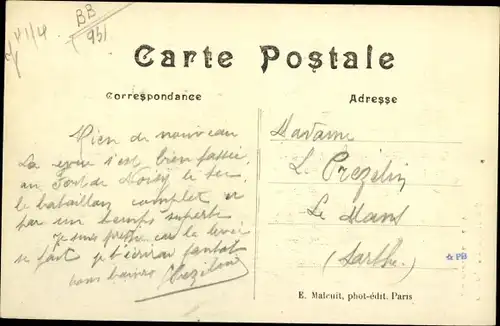 BB
951
Carte Postale
Correspondance
Adresse
Rien de nouveau
La revue s'est bien passée
au Fort de Noisy le sec
le bataillon complet et
par un temps superbe
Je suis pressé car la levée
se fait je t'écrirai tantôt
bons baisers Crezelin
Madame
L. Crezelin
Le Mans
(Sarthe)
☆ PB
E. Malcuit, phot-édit. Paris